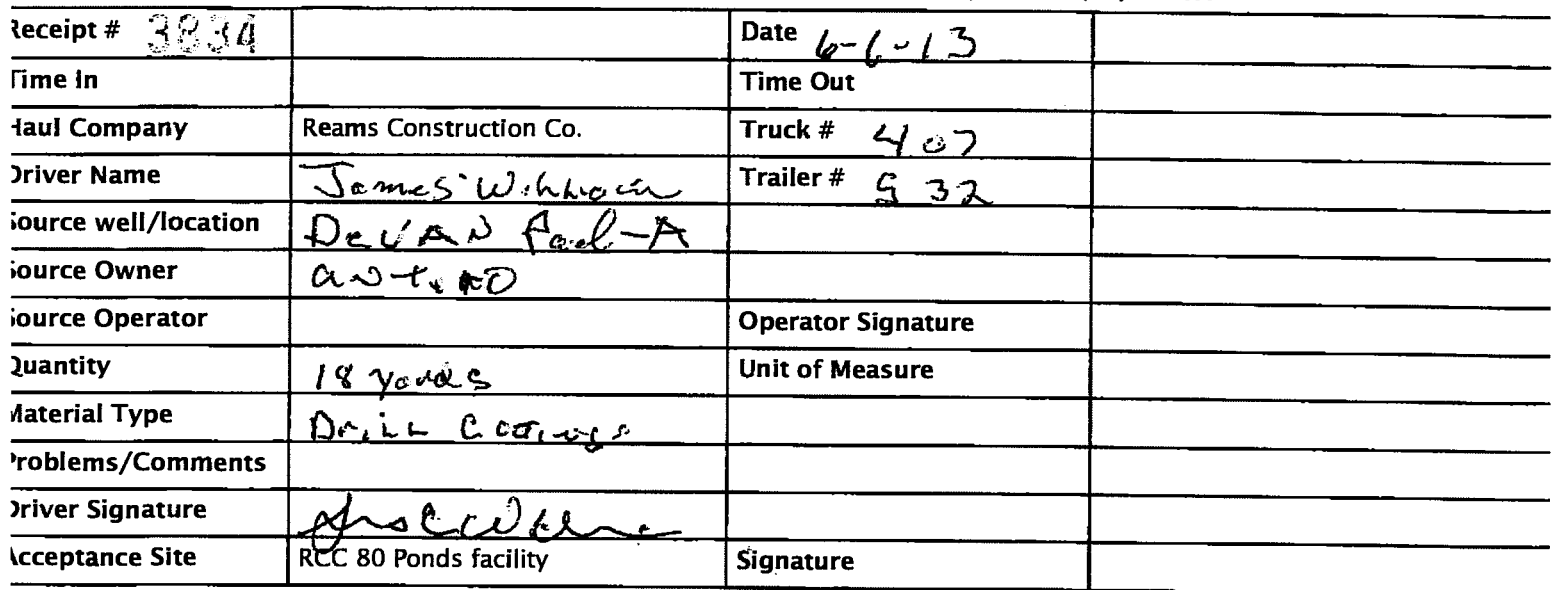 Receipt # 3834 Date 6-6-13
Time In Time Out
Haul Company Reams Construction Co. Truck # 407
Driver Name James Trailer # 532
Source well/location DeVAN Pad-A
Source Owner
Source Operator Operator Signature
Quantity 18 yards Unit of Measure
Material Type Drill
Problems/Comments
Driver Signature
Acceptance Site RCC 80 Ponds facility Signature